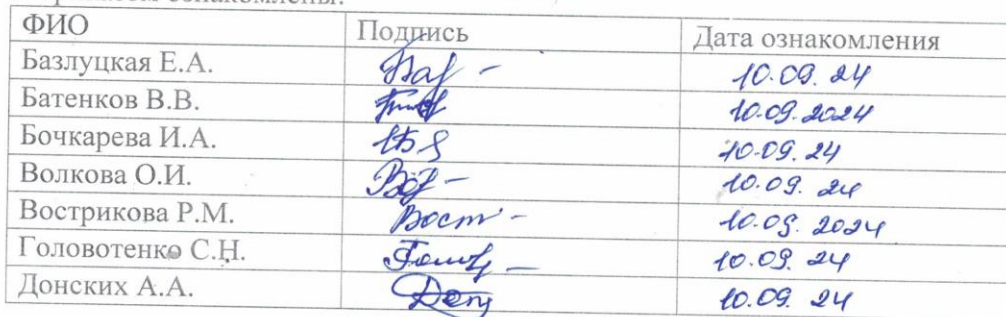 ознакомлены:
ФИО Подпись Дата ознакомления
Базлуцкая Е.А. 10.09.24
Батенков В.В. 10.09.2024
Бочкарева И.А. 10.09.24
Волкова О.И. 10.09.24
Вострикова Р.М. Вост 10.09.2024
Головотенко С.Н. 10.09.24
Донских А.А. 10.09.24